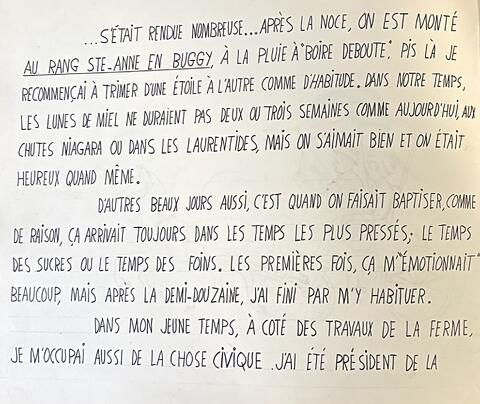 ...S'ÉTAIT RENDUE NOMBREUSE...APRÈS LA NOCE, ON EST MONTÉ
AU RANG STE-ANNE EN BUGGY, À LA PLUIE À "BOIRE DEBOUTE". PIS LÀ JE
RECOMMENÇAI À TRIMER D'UNE ÉTOILE À L'AUTRE COMME D'HABITUDE. DANS NOTRE TEMPS,
LES LUNES DE MIEL NE DURAIENT PAS DEUX OU TROIS SEMAINES COMME AUJOURD'HUI, AUX
CHUTES NIAGARA OU DANS LES LAURENTIDES, MAIS ON S'AIMAIT BIEN ET ON ÉTAIT
HEUREUX QUAND MÊME.
D'AUTRES BEAUX JOURS AUSSI, C'EST QUAND ON FAISAIT BAPTISER, COMME
DE RAISON, ÇA ARRIVAIT TOUJOURS DANS LES TEMPS LES PLUS PRESSÉS; LE TEMPS
DES SUCRES OU LE TEMPS DES FOINS. LES PREMIÈRES FOIS, ÇA M'"ÉMOTIONNAIT"
BEAUCOUP, MAIS APRÈS LA DEMI-DOUZAINE, J'AI FINI PAR M'Y HABITUER.
DANS MON JEUNE TEMPS, À COTÉ DES TRAVAUX DE LA FERME,
JE M'OCCUPAI AUSSI DE LA CHOSE CIVIQUE. J'AI ÉTÉ PRÉSIDENT DE LA